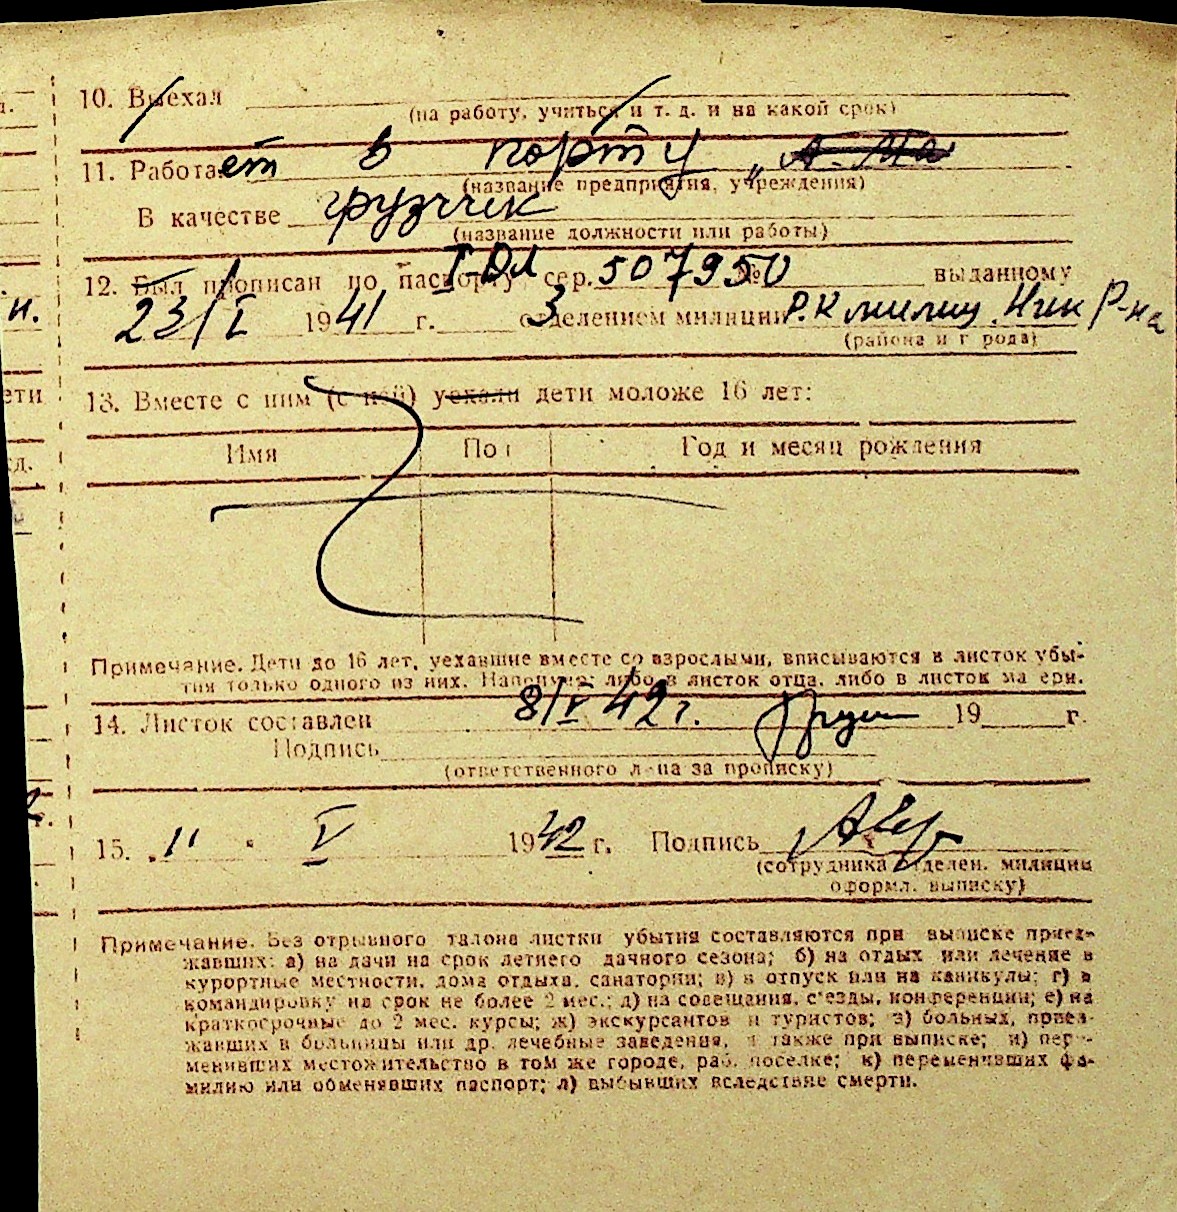 10. Выехал
(на работу, учиться и т. д. и на какой срок)
11. Работает в порту
(название предприятия, учреждения)
В качестве грузчик
(название должности или работы)
12. Был прописан по паспорту сер. 507950 № выданному
23/V 1941 г. 3 отделением милиции Р.К милиц. Р-на
(района и города)
13. Вместе с ним (с ней) уехали дети моложе 16 лет:
Имя Пол Год и месяц рождения
Примечание. Дети до 16 лет, уехавшие вместе со взрослыми, вписываются в листок убы-
тия только одного из них. Например: либо в листок отца, либо в листок матери.
14. Листок составлен 8/V 42 г. 19 г.
Подпись
(ответственного л-ца за прописку)
15. „11" V 1942 г. Подпись
(сотрудника отделен. милиции
оформл. выписку)
Примечание. Без отрывного талона листки убытия составляются при выписке приез-
жавших: а) на дачи на срок летнего дачного сезона; б) на отдых или лечение в
курортные местности, дома отдыха, санатории; в) в отпуск или на каникулы; г) в
командировку на срок не более 2 мес.; д) на совещания, с'езды, конференции; е) на
краткосрочные до 2 мес. курсы; ж) экскурсантов и туристов; з) больных, приез-
жавших в больницы или др. лечебные заведения, а также при выписке; и) пере-
менивших местожительство в том же городе, раб. поселке; к) переменивших фа-
милию или обменявших паспорт; л) выбывших вследствие смерти.